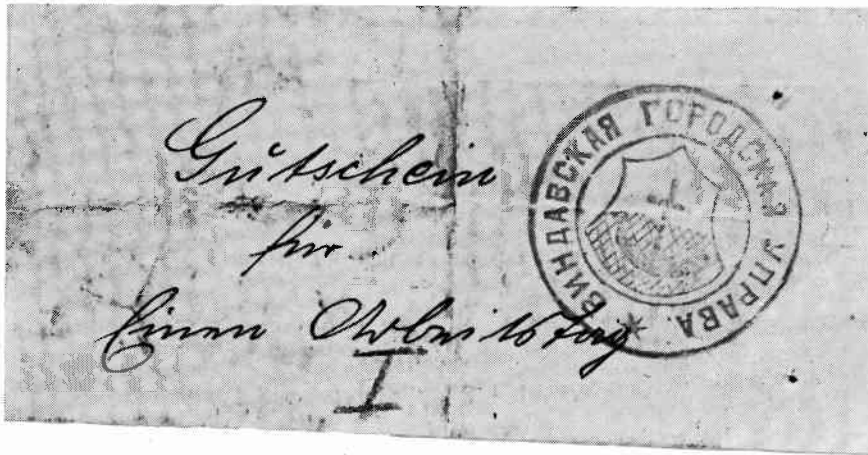 Gutschein
für
Einen Arbeitstag
I
ВИНДАВСКАЯ ГОРОДСКАЯ УПРАВА.